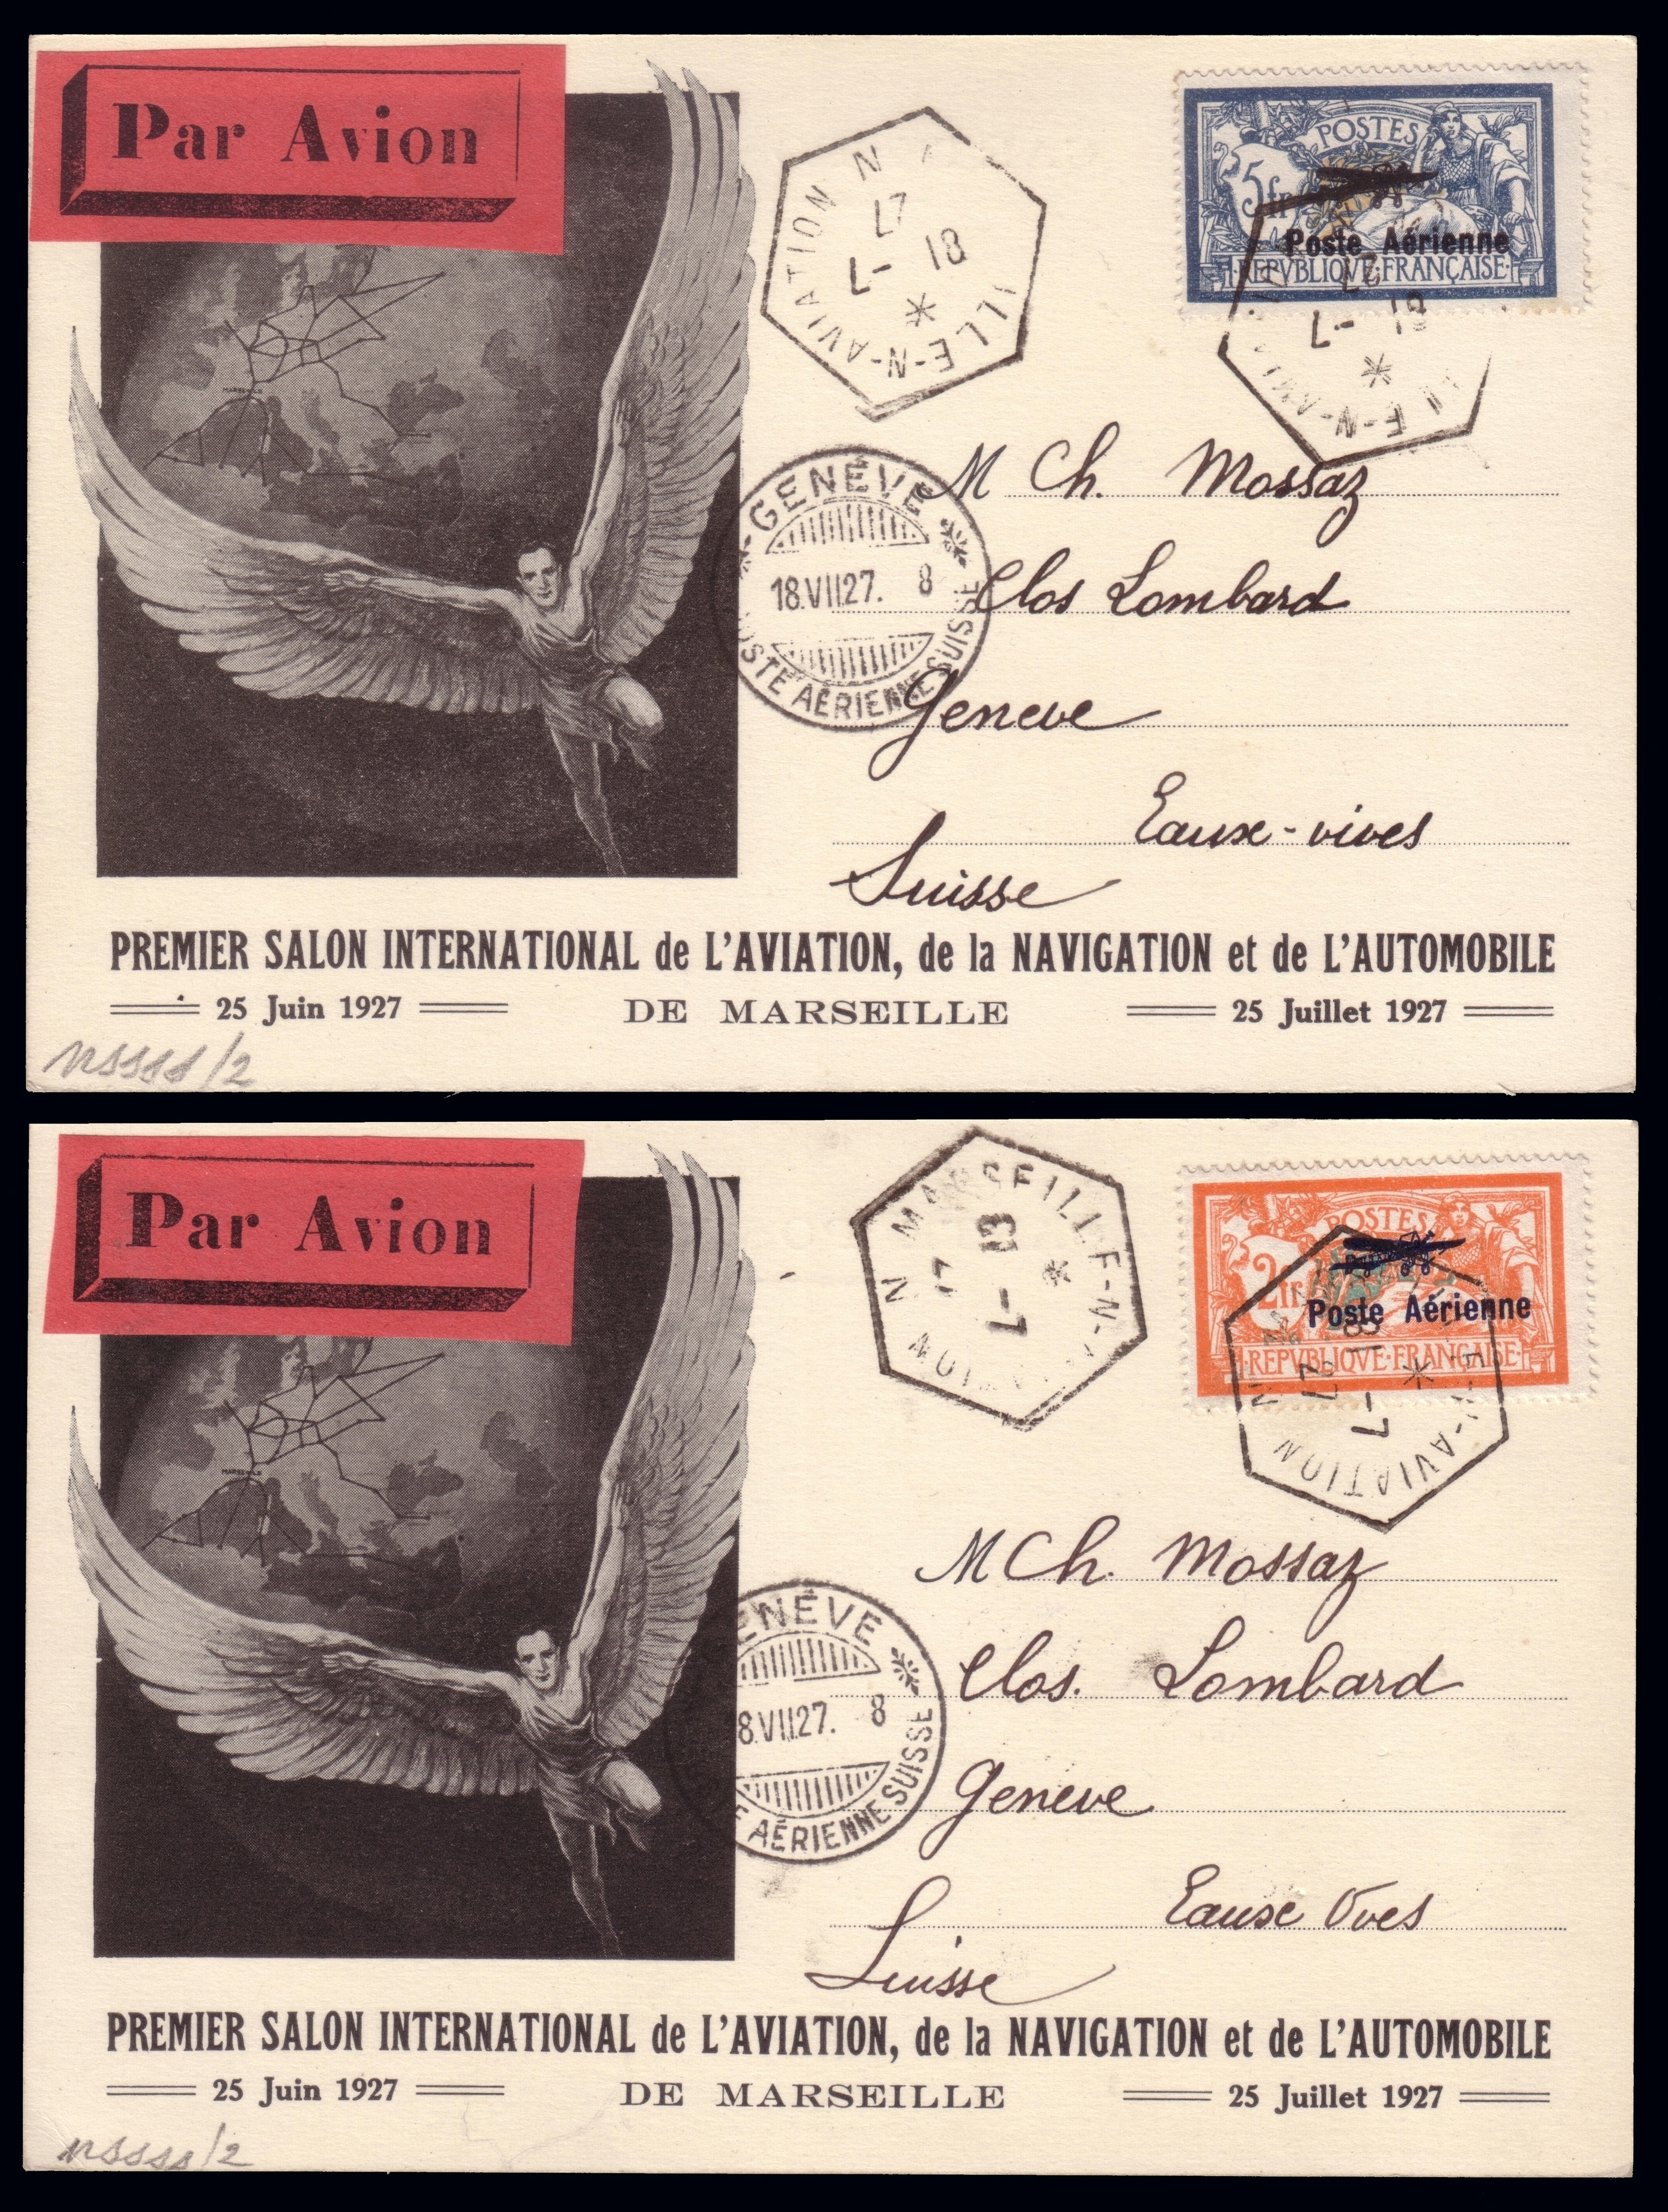 Par Avion
MARSEILLE
N
ILLE-N-AVIATION N
18
-7
27
POSTES
5fr
Poste Aérienne
REPVBLIQVE FRANÇAISE
18
-7
27
LE-N-AVI
GENÈVE
18.VII.27. 8
POSTE AÉRIENNE SUISSE
M Ch. Mossaz
Clos Lombard
Geneve
Eaux-vives
Suisse
PREMIER SALON INTERNATIONAL de L'AVIATION, de la NAVIGATION et de L'AUTOMOBILE
25 Juin 1927 DE MARSEILLE 25 Juillet 1927
/2
Par Avion
MARSEILLE
N MARSEILLE-N-
ION
18
-7
POSTES
2fr
Poste Aérienne
REPVBLIQVE FRANÇAISE
18
-7
27
E-N-AVIATION N
ENÈVE
8.VII.27. 8
E AÉRIENNE SUISSE
M Ch. Mossaz
Clos. Lombard
Geneve
Eaux Vives
Suisse
PREMIER SALON INTERNATIONAL de L'AVIATION, de la NAVIGATION et de L'AUTOMOBILE
25 Juin 1927 DE MARSEILLE 25 Juillet 1927
/2